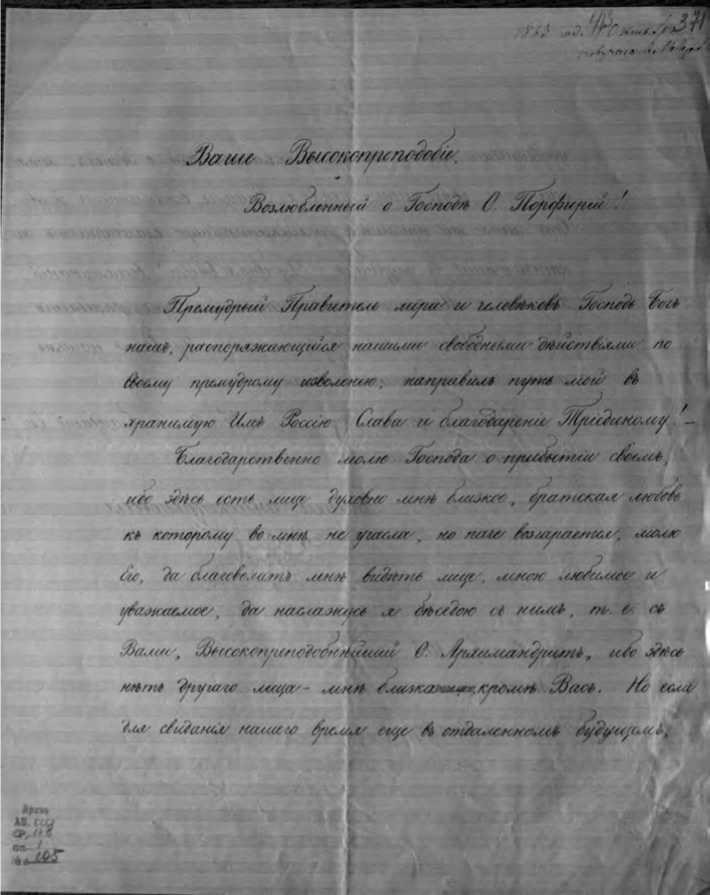 1863 год. 4/3 Октября 371
получено
Ваше Высокопреподобіе.
Возлюбленный о Господѣ О. Порфирій!
Премудрый Правитель мира и человѣковъ Господь Богъ
нашъ, распоряжающійся нашими свободными дѣйствіями по
Своему премудрому изволенію, направилъ путь мой въ
хранимую Имъ Россію. Слава и благодареніе Тріединому! –
Благодарственно молю Господа о прибытіи своемъ,
ибо здѣсь есть лице, духовно мнѣ близкое, братская любовь
къ которому во мнѣ не угасла, но паче возгарается, молю
Его, да благоволитъ мнѣ видѣть лице, мною любимое и
уважаемое, да наслаждусь я бесѣдою съ нимъ, т. е. съ
Вами, Высокопреподобнѣйшій О. Архимандритъ, ибо здѣсь
нѣтъ другаго лица – мнѣ близка кромѣ Васъ. Но если
для свиданія нашего время еще въ отдаленномъ будущемъ,
Архив
АН СССР
оп. 1
№ 105